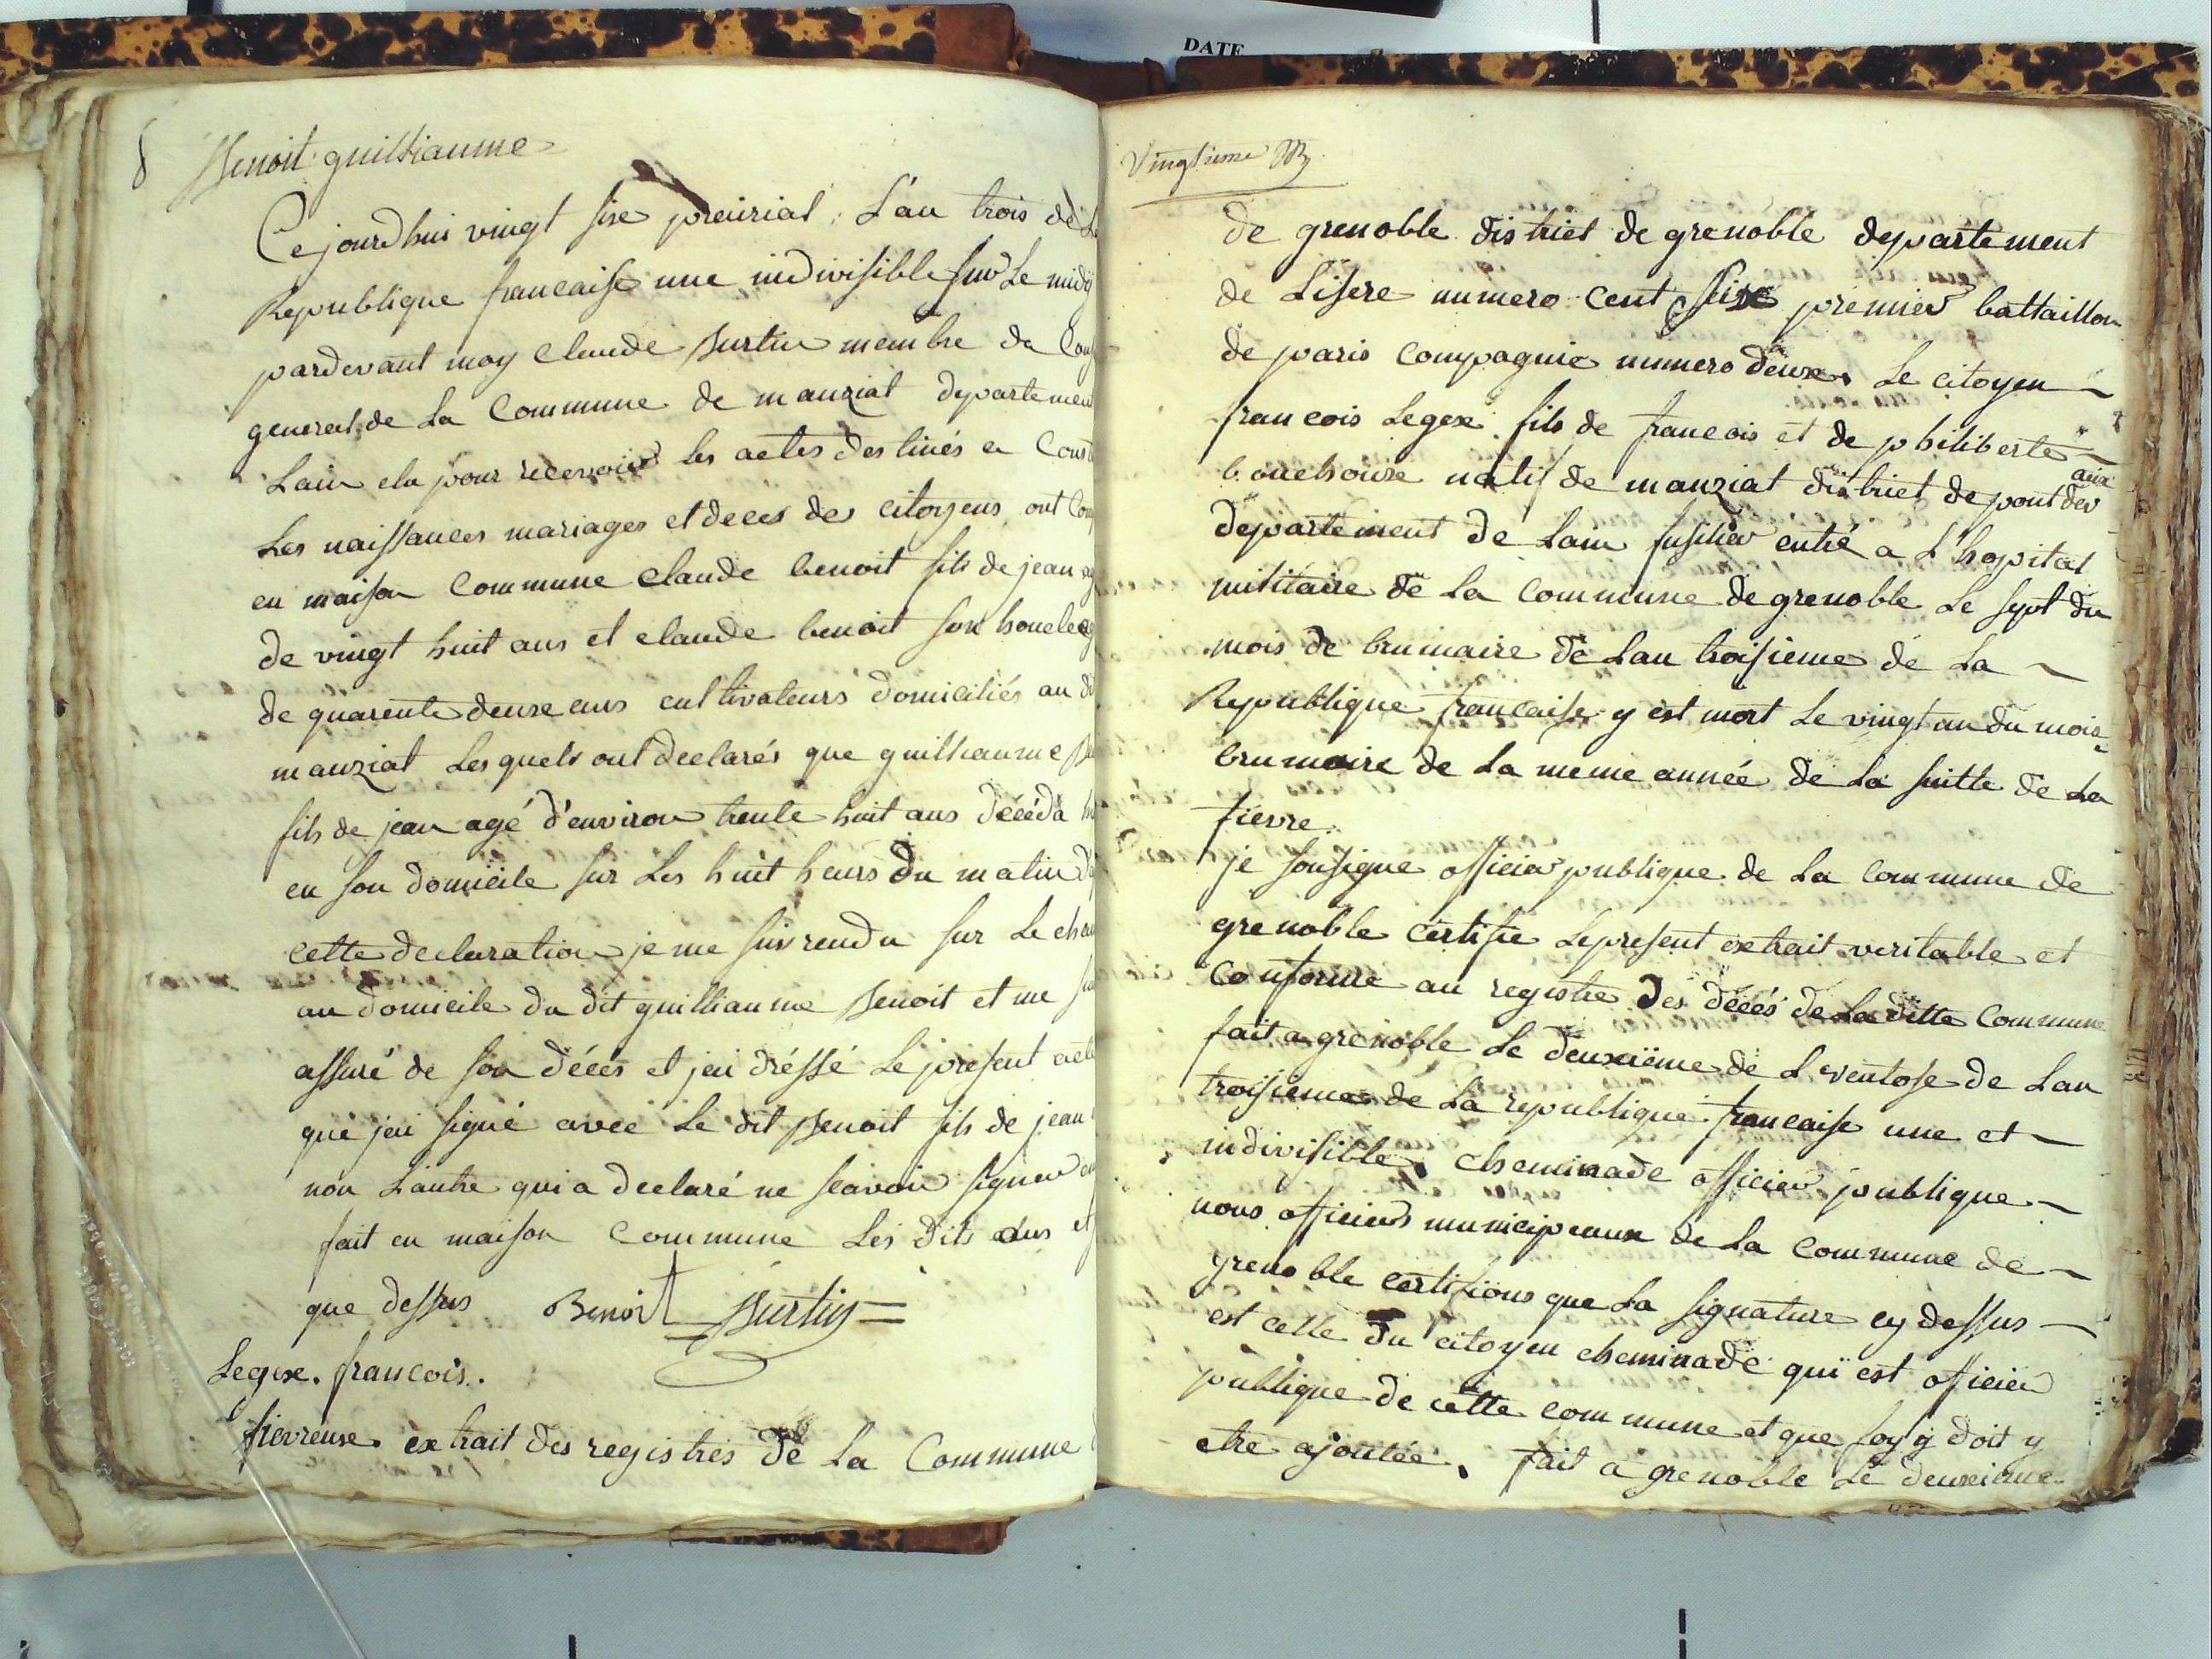 DATE
8 Benoit guilliaume
Ce jourdhui vingt sixe preirial L'au trois de La
Republique francaise une indivisible sur Le midy
pardevant moy claude Burtin membre du Con
general de La Commune de manziat departemen
Lain elu pour recevoir les actes destinés a Const
Les naissances mariages et deces des citoyens ont Com
en maison Commune claude benoit fils de jean ag
de vingt huit ans et claude benoit son honcle ag
de quarente deuxe ans cultivateurs domiciliés au di
manziat Les quels ont declarés que guilliaume Be
fils de jean agé d'environ trente huit ans décéda
en son domicile sur Les huit heurs du matin d
cette declaration je me suis rendu sur Le cham
au domicile du dit guilliaume Benoit et me su
assuré de son décés et jai dréssé Le present acte
que jai signé avec Le dit Benoit fils de jean
non Lautre qui a declaré ne scavoir signer
fait en maison Commune Les dits dus et
que dessus Benoit Burtin
Legex. francois.
fievreuse extrait des registres de La Commune
Vingtieme
de grenoble district de grenoble departement
de Lisere numero cent seixe premier battaillon
de paris compagnie numero deuxe. Le citoyen
francois Legex fils de francois et de philiberte
bouchoire natif de manziat district de pont dev
aux
departement de Lain fusilier entré a L'hopital
militaire de La Commune de grenoble Le sept du
mois de brumaire de Lan troisieme de La
Republique francaise y est mort Le vingt un du mois
brumaire de La meme année de La suitte de La
fievre.
je sousigne officier publique de La Commune de
grenoble certifie Le present extrait veritable et
conforme au registre Des décés de La ditte Commune
fait a grenoble Le deuxiême de L ventose de Lan
troisieme de La republique francaise une et
indivisible, cheminade officier publique
nous officiers municipeaux de La Commune de
grenoble certifions que La signature cy dessus
est celle du citoyen cheminade qui est officier
publique de cette commune et que foy y doit y
etre ajoutée. fait a grenoble Le deuxieme